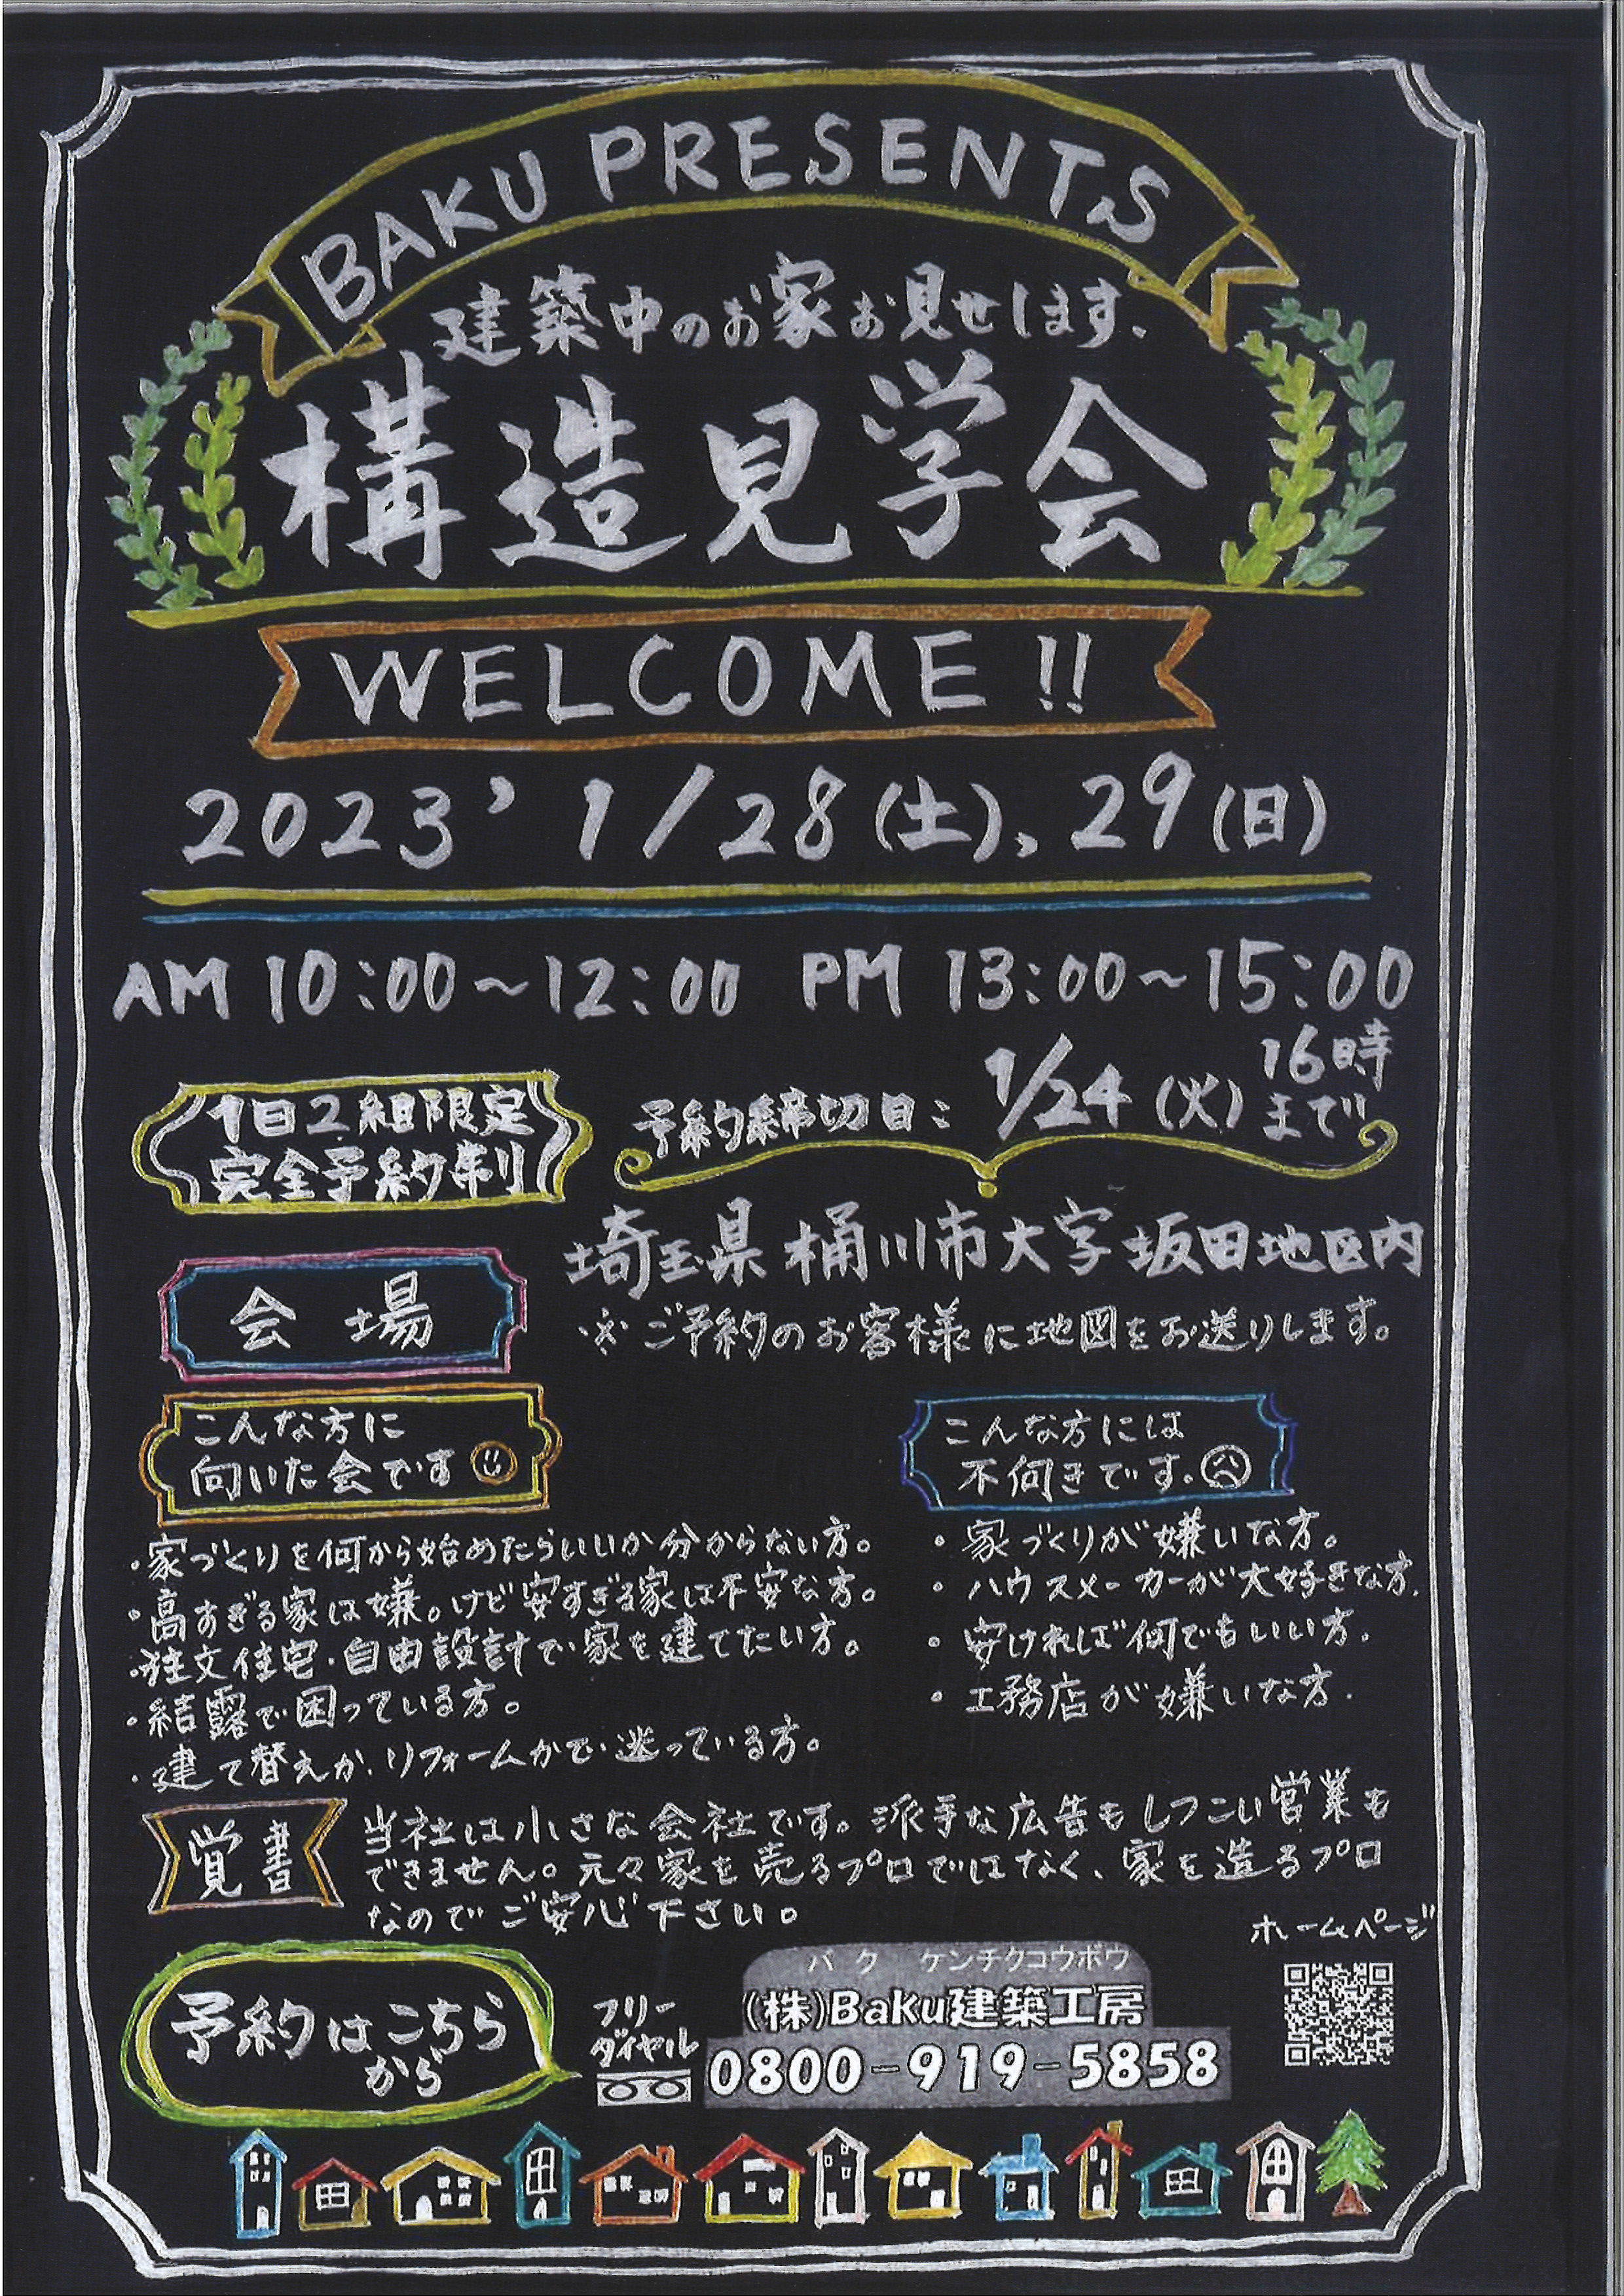 BAKU PRESENTS
建築中のお家お見せします.
構造見学会
WELCOME!!
2023' 1/28(土), 29(日)
AM 10:00~12:00 PM 13:00~15:00
1日2組限定
完全予約制
予約締切日: 1/24(火) 16時まで
会場
埼玉県桶川市大字坂田地区内
※ご予約のお客様に地図をお送りします。
こんな方に
向いた会です
・家づくりを何から始めたらいいか分からない方。
・高すぎる家は嫌。けど安すぎる家は不安な方。
・注文住宅・自由設計で家を建てたい方。
・結露で困っている方。
・建て替えか、リフォームかで迷っている方。
こんな方には
不向きです.
・家づくりが嫌いな方。
・ハウスメーカーが大好きな方.
・安ければ何でもいい方.
・工務店が嫌いな方.
覚書
当社は小さな会社です。派手な広告もしつこい営業も
できません。元々家を売るプロではなく、家を造るプロ
なのでご安心下さい。
ホームページ
予約はこちら
から
フリー
ダイヤル
バク ケンチクコウボウ
(株)Baku建築工房
0800-919-5858